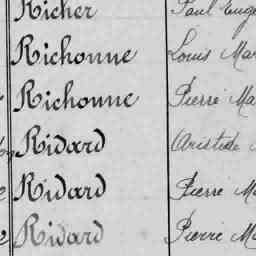 Richer Paul Eug
Richonne Louis Mar
Richonne Pierre Ma
Ridard Aristide
Ridard Pierre M
Ridard Pierre M